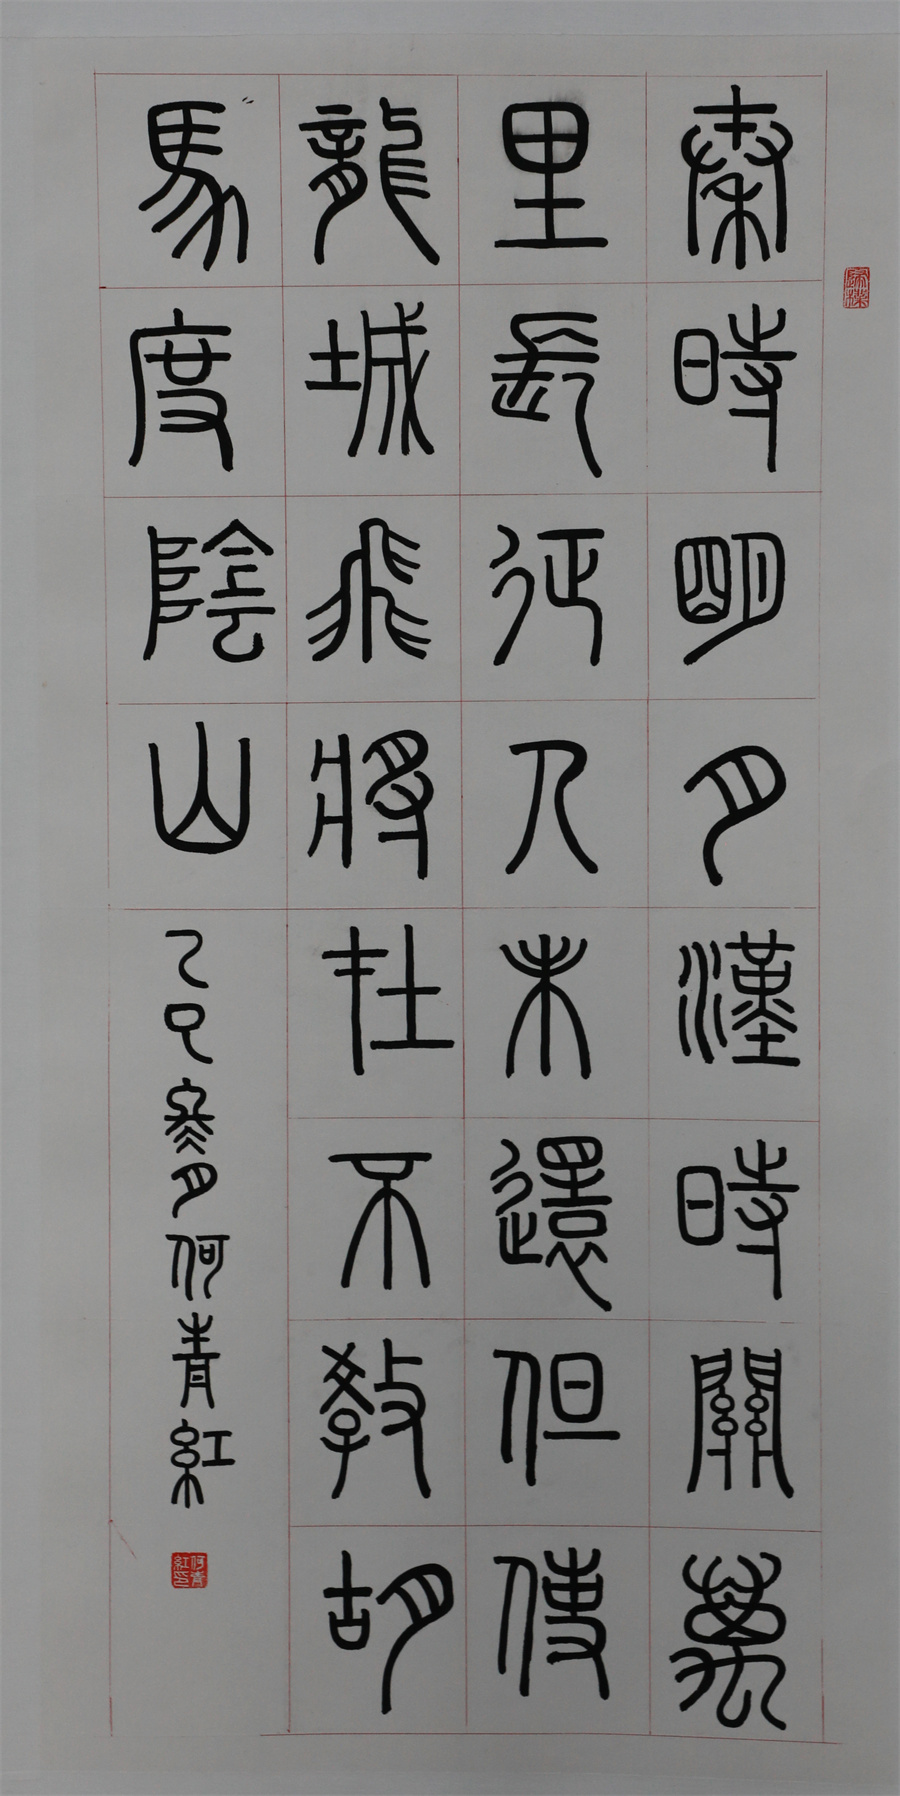 秦時明月漢時關萬
里長征人未還但使
龍城飛將在不教胡
馬度陰山
乙巳參月何青紅
何青紅印